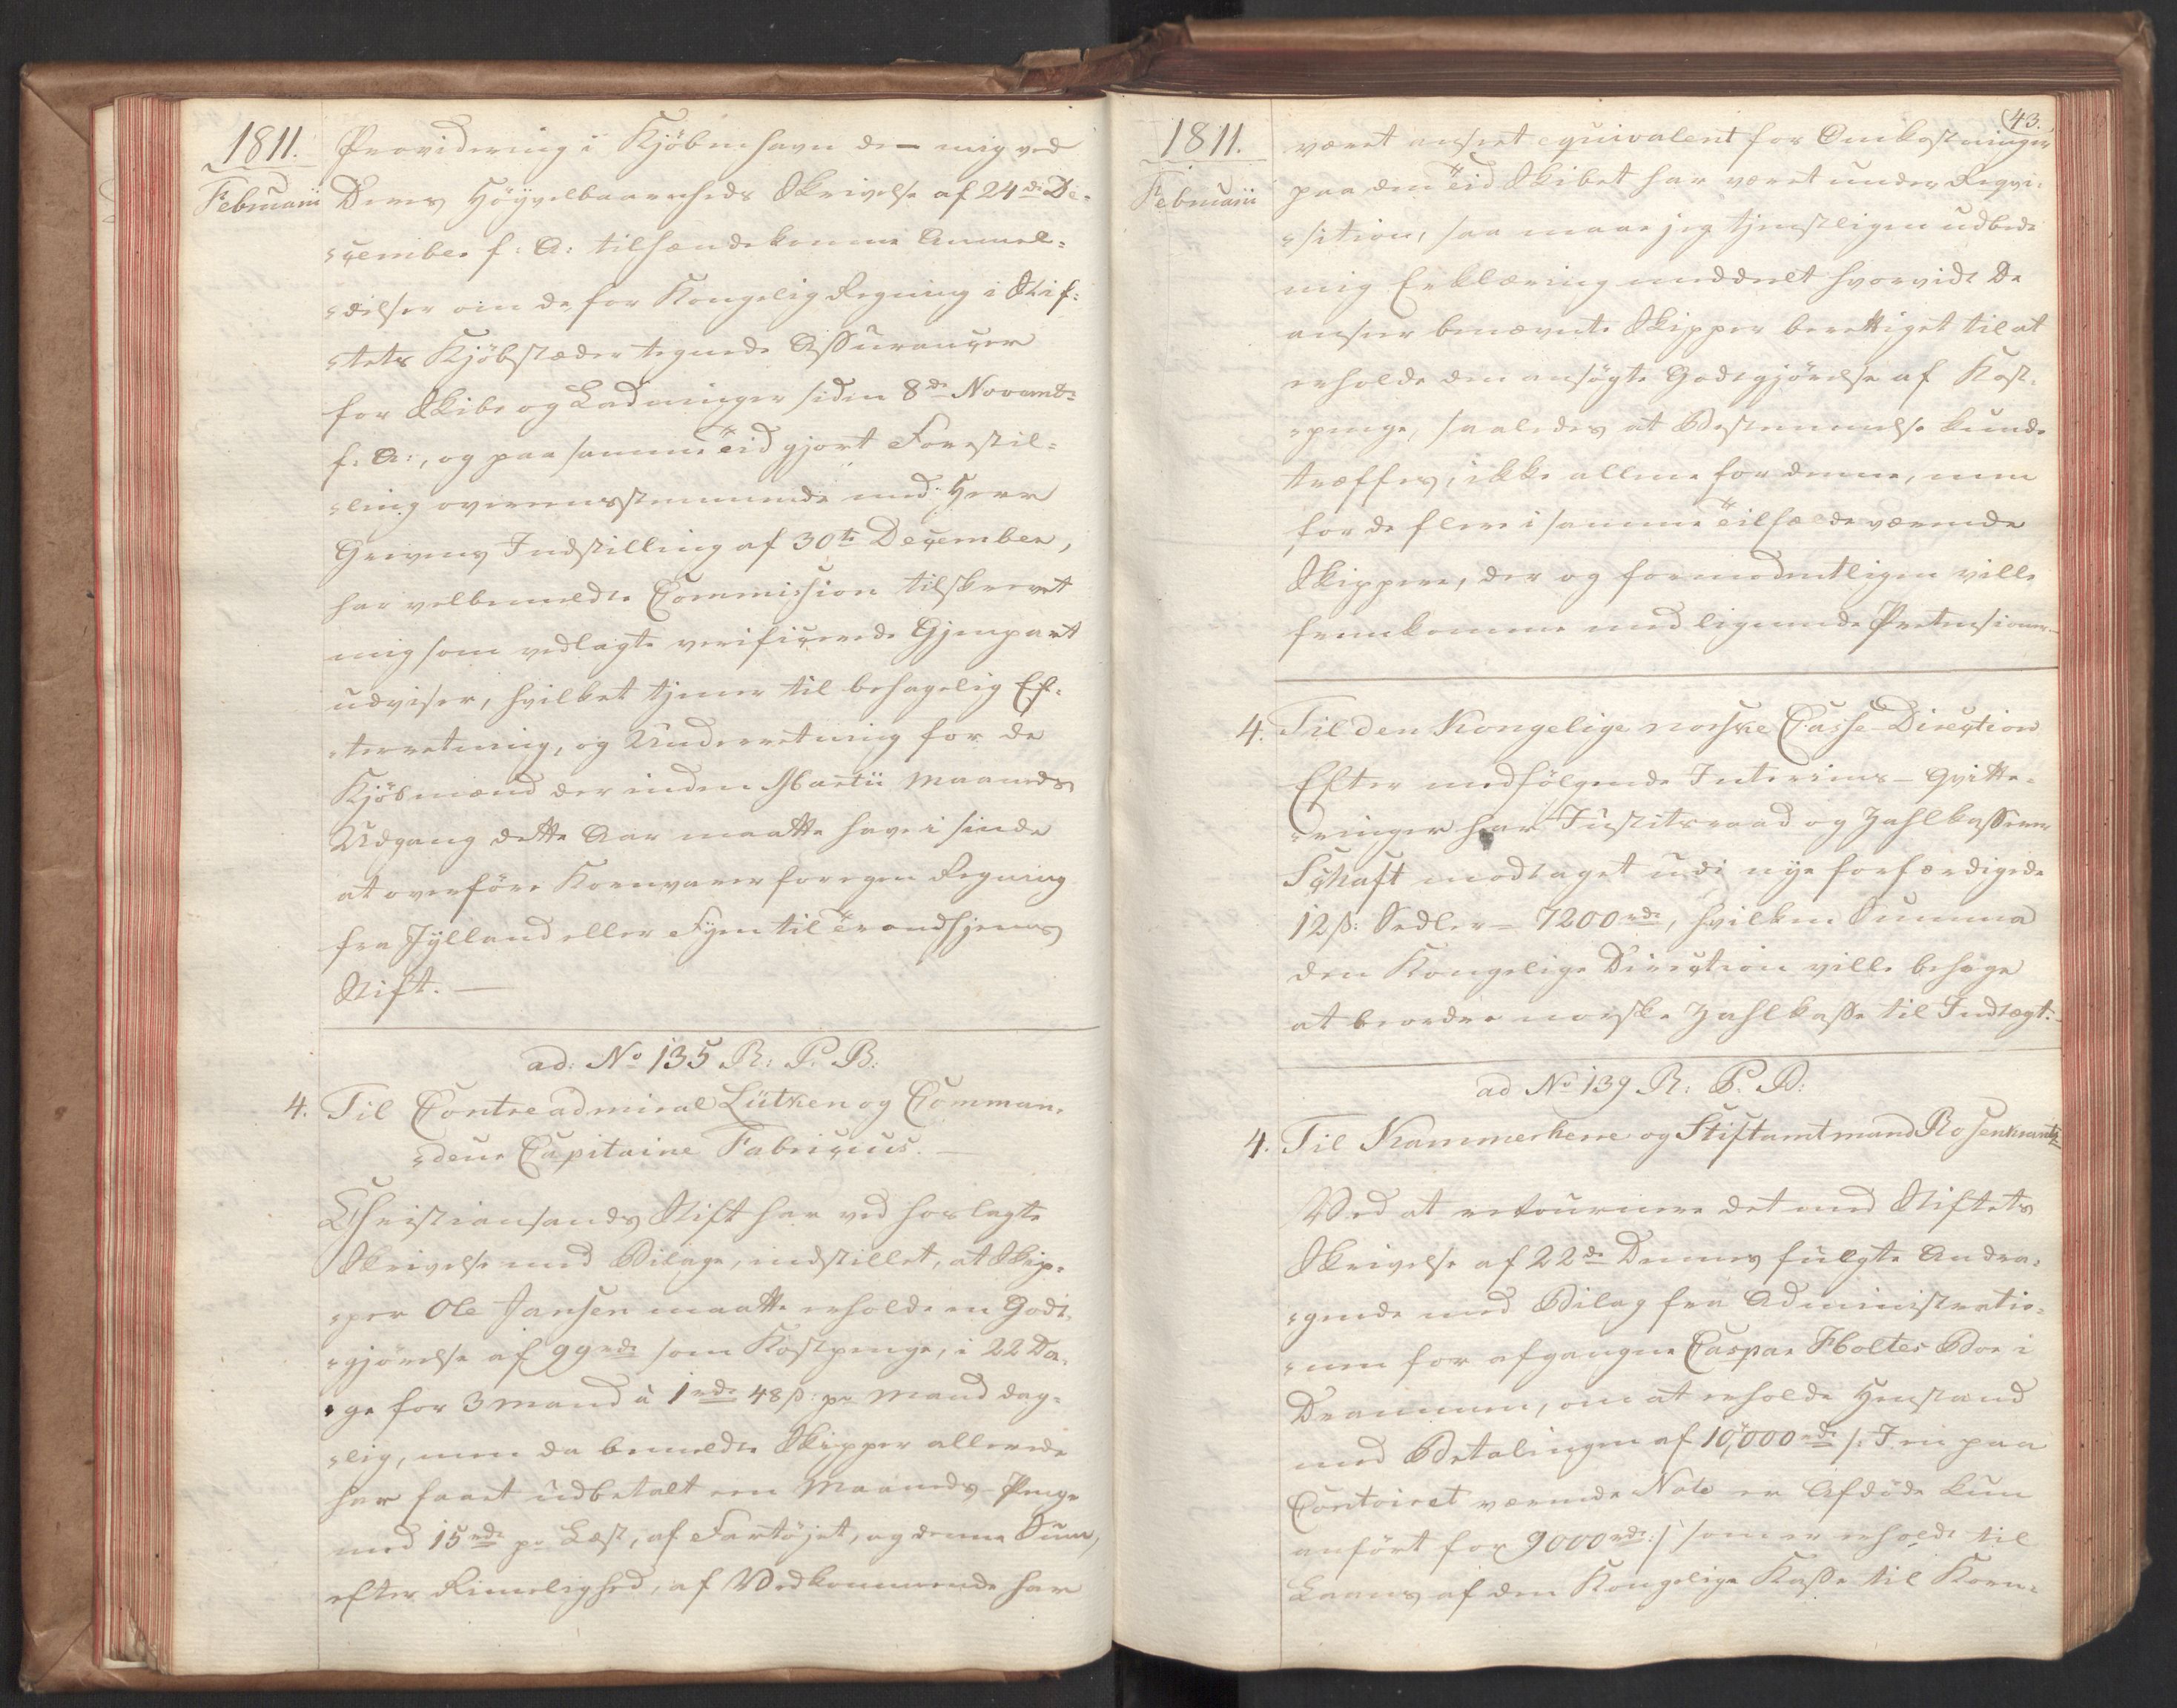 1811.
Februarii
Providering i Kjöbenhavn de mig ved
Deres Höyvelbaarenheds Skrivelse af 24de De-
cember f: A: tilhændekomne Anmel-
delser om de for Kongelig Regning i Stif-
tets Kjöbstæder tegnede Assurancer
for Skibe og Ladninger siden 8de Novembr
f: A:, og paa samme Tid gjort Forestil-
ling overeensstemmende med Herr
Grevens Indstilling af 30te December,
har velbemeldte Commission tilskrevet
mig som vedlagte verificerede Gjenpart
udviser, hvilket tjener til behagelig Ef-
terretning, og Underretning for de
Kjöbmænd der inden Martii Maaneds
Udgang dette Aar maatte have i sinde
at overföre Kornvarer for egen Regning
fra Jylland eller Fyen til Trondhjems
Stift. —
ad: No 135 R: P. B:
4. Til Contreadmiral Lütken og Comman-
deur Capitaine Fabricius. —
Christiansands Stift har ved hoslagte
Skrivelse med Bilage, indstillet, at Skip-
per Ole Jansen maatte erholde en Godt-
gjörelse af 99 rdr som Kostpenge, i 22 Da-
ge for 3 Mand à 1 rdr 48 ß: pr Mand dag-
lig, men da bemeldte Skipper allerede
har faaet udbetalt een Maaneds-Penge
med 15 rdr pr Læst, af Fartöjet, og denne Sum,
efter Rimelighed, af Vedkommende har
43.
1811.
Februarii
været anseet equivalent for Omkostninger
paa den Tid Skibet har været under Reqvi-
sition, saa maae jeg tjenstligen udbede
mig Erklæring meddeelt hvorvidt De
anseer benævnte Skipper berettiget til at
erholde den ansögte Godtgjörelse af Kost-
penge, saaledes at Bestemmelse kunde
træffes, ikke allene for denne, men
for de flere i samme Tilfælde værende
Skippere, der og formodentligen ville
fremkomme med lignende Pretensioner —
4. Til den Kongelige norske Casse Direction
Efter medfölgende Interims-Qvitte-
ringer har Justitsraad og Zahlkasserer
Schaft modtaget udi nye forfærdigede
12 ß: Sedler = 7200 rdr, hvilken Summa
den Kongelige Direction ville behage
at beordre norske Zahlkasse til Indtægt. —
ad No 139 R: P. B:
4. Til Kammerherre og Stiftamtmand Rosenkrantz
Ved at retournere det med Stiftets
Skrivelse af 22de Dennes fulgte Andra-
gende med Bilag fra Administratio-
nen for afgangne Caspar Holtes Boe i
Drammen, om at erholde Henstand
med Betalingen af 10,000 rdr /: I en paa
Contoiret værende Note er Afdöde kun
anfört for 9000 rdr :/ som er erholdt til
Laans af den Kongelige Kasse til Korn-